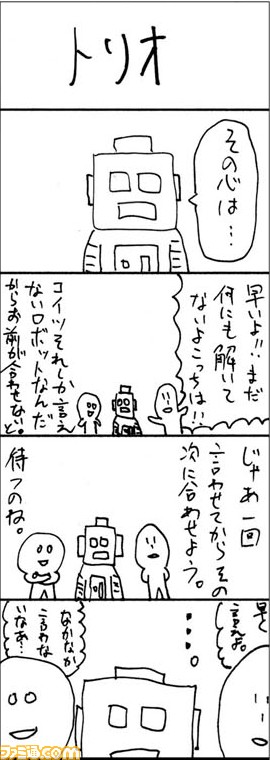 トリオ
その心は…
早いよ!!まだ
何にも解いて
ないよこっちは!!
コイツそれしか言え
ないロボットなんだ
からお前が合わせないと。
じゃあ一回
言わせてからその
次に合わせよう。
待つのね。
早く
言えよ。
…。
なかなか
言わな
いなあ…
ファミ通.com